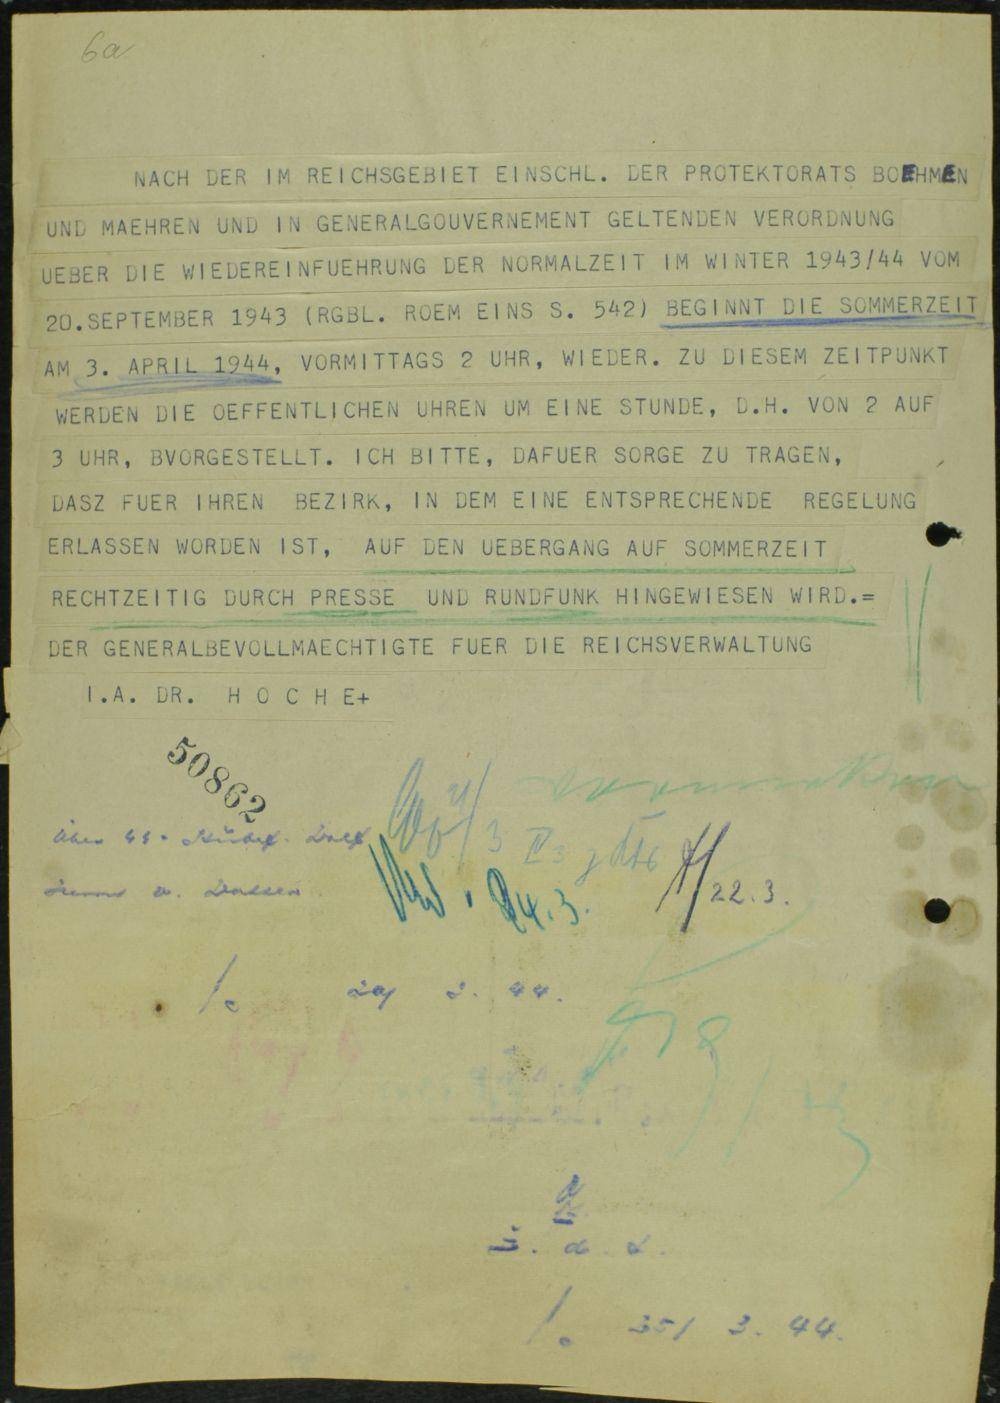 6a
NACH DER IM REICHSGEBIET EINSCHL. DER PROTEKTORATS BOEHMEN
UND MAEHREN UND IN GENERALGOUVERNEMENT GELTENDEN VERORDNUNG
UEBER DIE WIEDEREINFUEHRUNG DER NORMALZEIT IM WINTER 1943/44 VOM
20.SEPTEMBER 1943 (RGBL. ROEM EINS S. 542) BEGINNT DIE SOMMERZEIT
AM 3. APRIL 1944, VORMITTAGS 2 UHR, WIEDER. ZU DIESEM ZEITPUNKT
WERDEN DIE OEFFENTLICHEN UHREN UM EINE STUNDE, D.H. VON 2 AUF
3 UHR, BVORGESTELLT. ICH BITTE, DAFUER SORGE ZU TRAGEN,
DASZ FUER IHREN BEZIRK, IN DEM EINE ENTSPRECHENDE REGELUNG
ERLASSEN WORDEN IST, AUF DEN UEBERGANG AUF SOMMERZEIT
RECHTZEITIG DURCH PRESSE UND RUNDFUNK HINGEWIESEN WIRD.=
DER GENERALBEVOLLMAECHTIGTE FUER DIE REICHSVERWALTUNG
I.A. DR. H O C H E+
50862
22.3.
24.3.
3. 44.